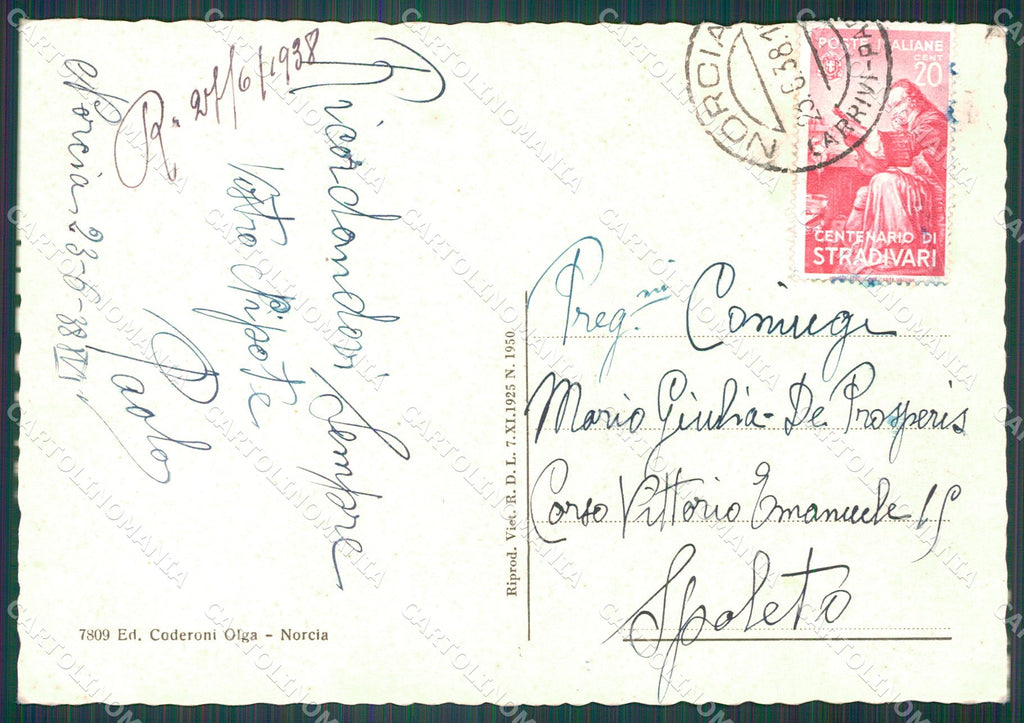 Norcia 23-6-38 XVI
R. 27/6/1938
Ricordandovi sempre
Vostro Nipote
Paolo
7809 Ed. Coderoni Olga - Norcia
Riprod. Viet. R. D. L. 7.XI.1925 N. 1950
NORCIA
23.6.38.1
(ARRIVI-PA
POSTE ITALIANE
CENT
20
CENTENARIO DI
STRADIVARI
Preg.mi Coniugi
Mario Giulia De Prosperis
Corso Vittorio Emanuele 15
Spoleto
CARTOLINOMANIA